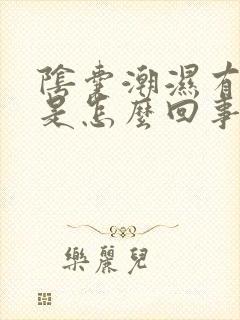 陰囊潮濕有
是怎麼回事
樂麗兒